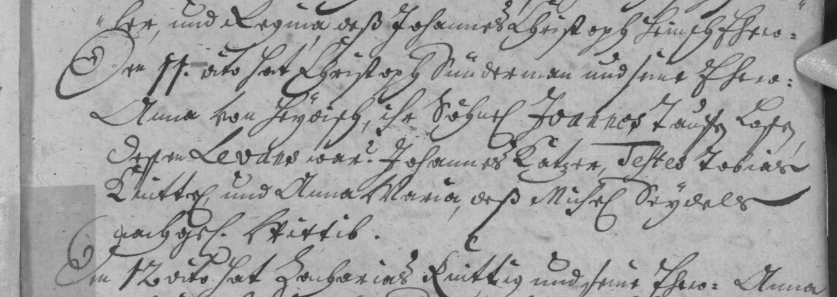 ber, und Regina, deß Johannes Christoph
Den 11. dito hat Christoph Sünderman und seine Ehew:
Anna von, ihr Söhnel Joannes Tauffen Lassen,
dessen Levans war: Johannes Katzer, Testes Tobias
Knittel, und Anna Maria, deß Michel Seydels
nachgel. Wittib.
Den 12 dito hat Zacharias Knittig und seine Ehew: Anna